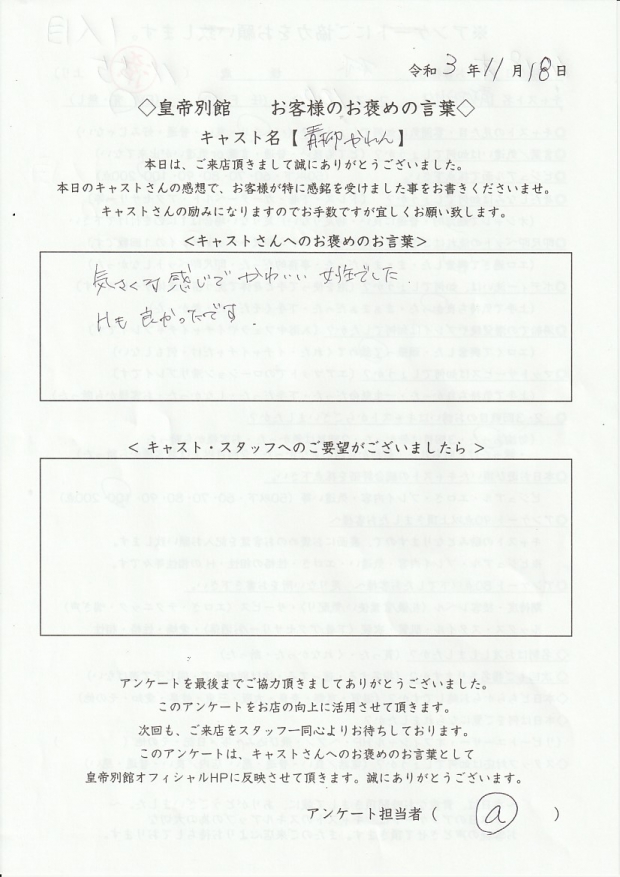 令和3年11月18日
◇皇帝別館　お客様のお褒めの言葉◇
キャスト名【青柳かれん】
本日は、ご来店頂きまして誠にありがとうございました。
本日のキャストさんの感想で、お客様が特に感銘を受けました事をお書きくださいませ。
キャストさんの励みになりますのでお手数ですが宜しくお願い致します。
<キャストさんへのお褒めのお言葉>
気さくな感じでかわいい女性でした.
Hも良かったです.
< キャスト・スタッフへのご要望がございましたら >
アンケートを最後までご協力頂きましてありがとうございました。
このアンケートをお店の向上に活用させて頂きます。
次回も、ご来店をスタッフ一同心よりお待ちしております。
このアンケートは、キャストさんへのお褒めのお言葉として
皇帝別館オフィシャルHPに反映させて頂きます。誠にありがとうございます。
アンケート担当者（ a ）